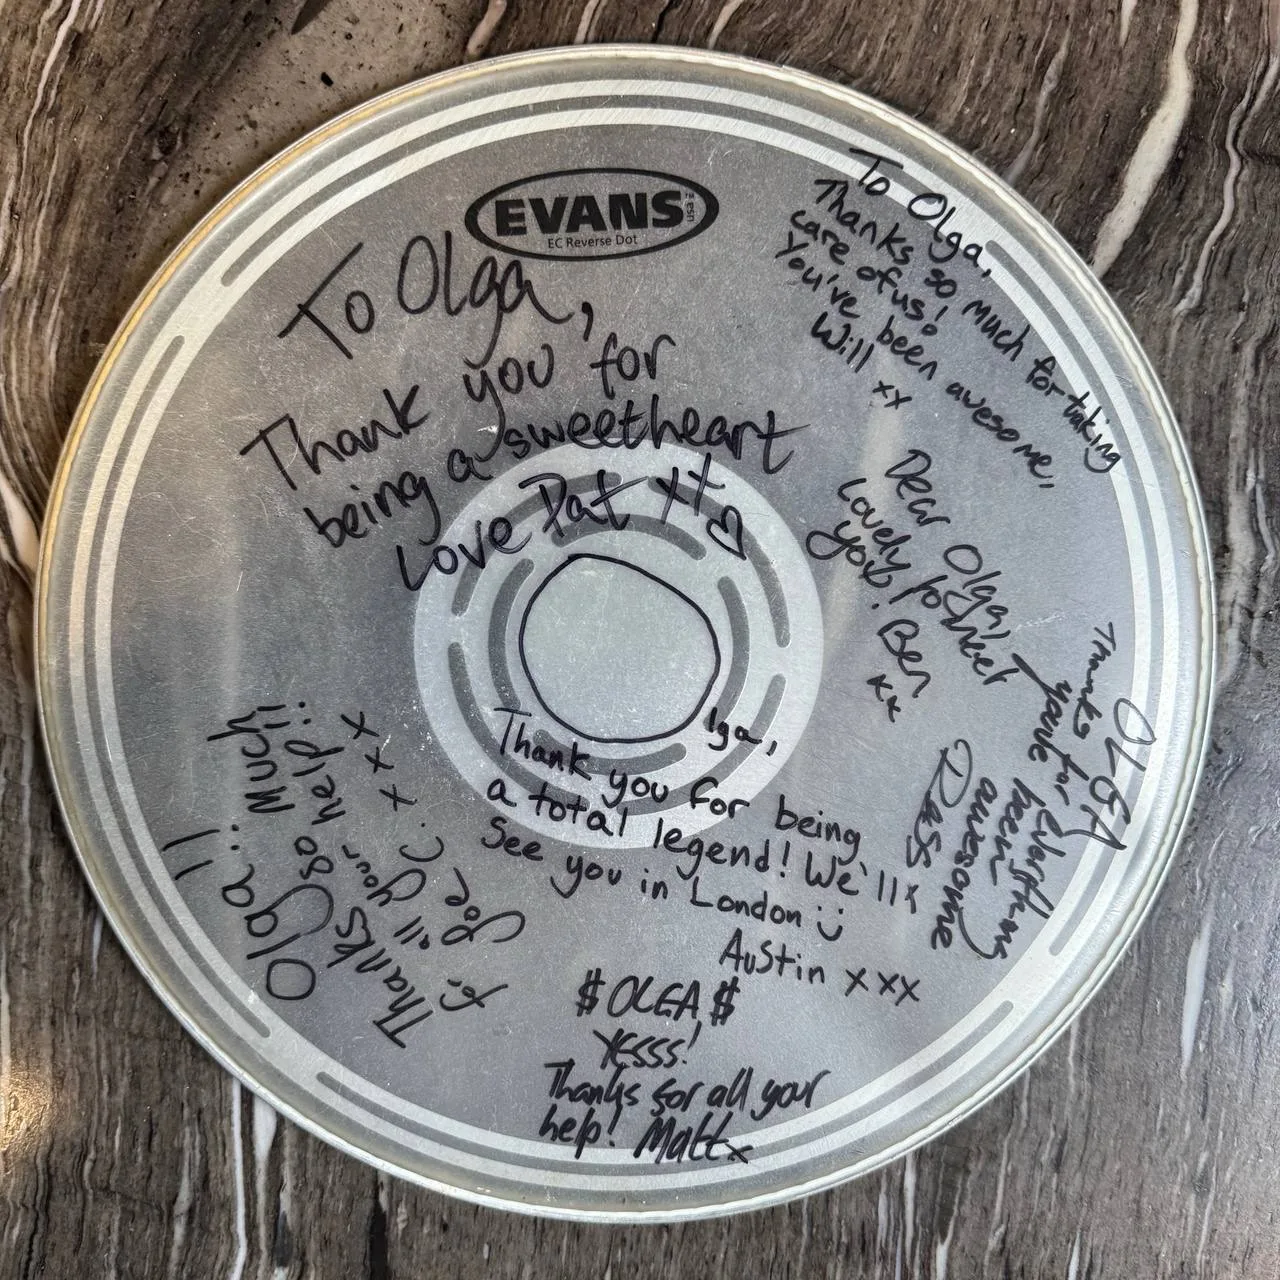 EVANS
usa
EC Reverse Dot
To Olga,
Thank you for
being a sweetheart
Love Pat xx
To Olga,
Thanks so much for taking
care of us!
You've been awesome,
Will xx
Dear Olga,
Lovely to meet
you! Ben
xx
OLGA
Thanks for everything
you've been
awesome
Olga,
Thank you for being
a total legend! We'll
see you in London :)
Austin xxx
$ OLGA $
YESSS!
Thanks for all your
help! Matt x
Olga!!
Thanks so Much
for all your help!!
Joe C. xxx